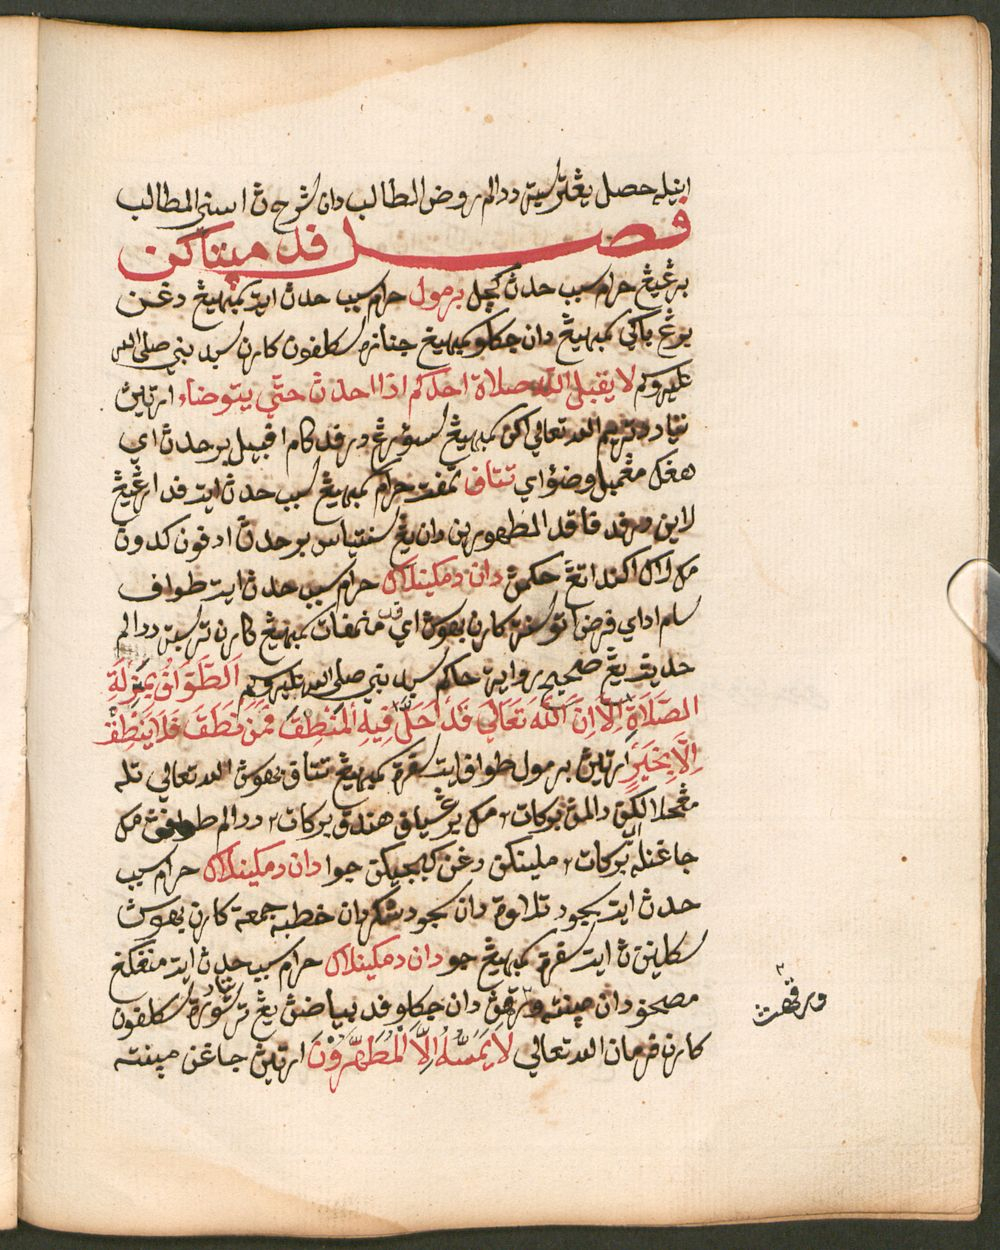 اينيله حصل يڠترسبة ددالم روض الطالب دان شرح ث اسنى المطالب
فصل فد مپتاكن
برڠيڠ حرام سبب حدث كچل برمول حرام سبب حدث ايت سمبهيڠ دڠن
يڠ باڬي سمبهيڠ دان جكلو سمبهيڠ جنازه سكلفون كارن سبد نبي صلى الله
عليه وسلم لا يقبل الله صلاة احدكم اذا احدث حتى يتوضاء ارتيث
تياد دتريم الله تعالى اكن سمبهيڠ سؤرڠ درفد كامو افبيل برحدث اي
هڠڬ مڠمبل وضوء اي تتاف تمفت حرام سمبهيڠ سبب حدث ايت فد ارڠيڠ
لاين درفد فاقد الطهورين دان يڠ سنتياس برحدث ادفون كدوث
مك لاڬ اكن داتڠ حكمث دان دمكينلاڬ حرام سبب حدث ايت طواف
سام اداي فرض اتو سنة كارن بهوسث اي فد منمفات سمبهيڠ كارن ترسبة ددالم
حديث يڠ صحيح رواية حاكم سبد نبي صلى الله عليه وسلم الطَّوَافُ بِمَنْزِلَةِ
الصَّلَاةِ اِلَّا اِنَّ اللّٰهَ تَعَالَى قَدْ اَحَلَّ فِيهِ الْمَنْطِقَ فَمَنْ نَطَقَ فَلَا يَنْطِقْ
اِلَّا بِخَيْرٍ ارتيث برمول طواف ايت سفرة سمبهيڠ تتاف بهوسث الله تعالى تله
مڠحلالكن دالمث بركات٢ مك برڠسياف هندق بركات٢ ددالم طوافث مك
جاڠنله اي بركات٢ ملينكن دڠن كبجيكن جوا دان دمكينلاڬ حرام سبب
حدث ايت سجود تلاوة دان سجود شكر دان خطبه جمعة كارن بهوسث
سكلينث ايت سفرة سمبهيڠ جو دان دمكينلاڬ حرام سبب حدث ايت منڠڬڠ
مصحف دان مپنته ورقهث دان جكلو فد بياضث يڠ تياد ترسورة سكلفون
كارن فرمان الله تعالى لَا يَمَسُّهُ اِلَّا الْمُطَهَّرُوْنَ ارتيث جاڠن مپنته
ورقهث